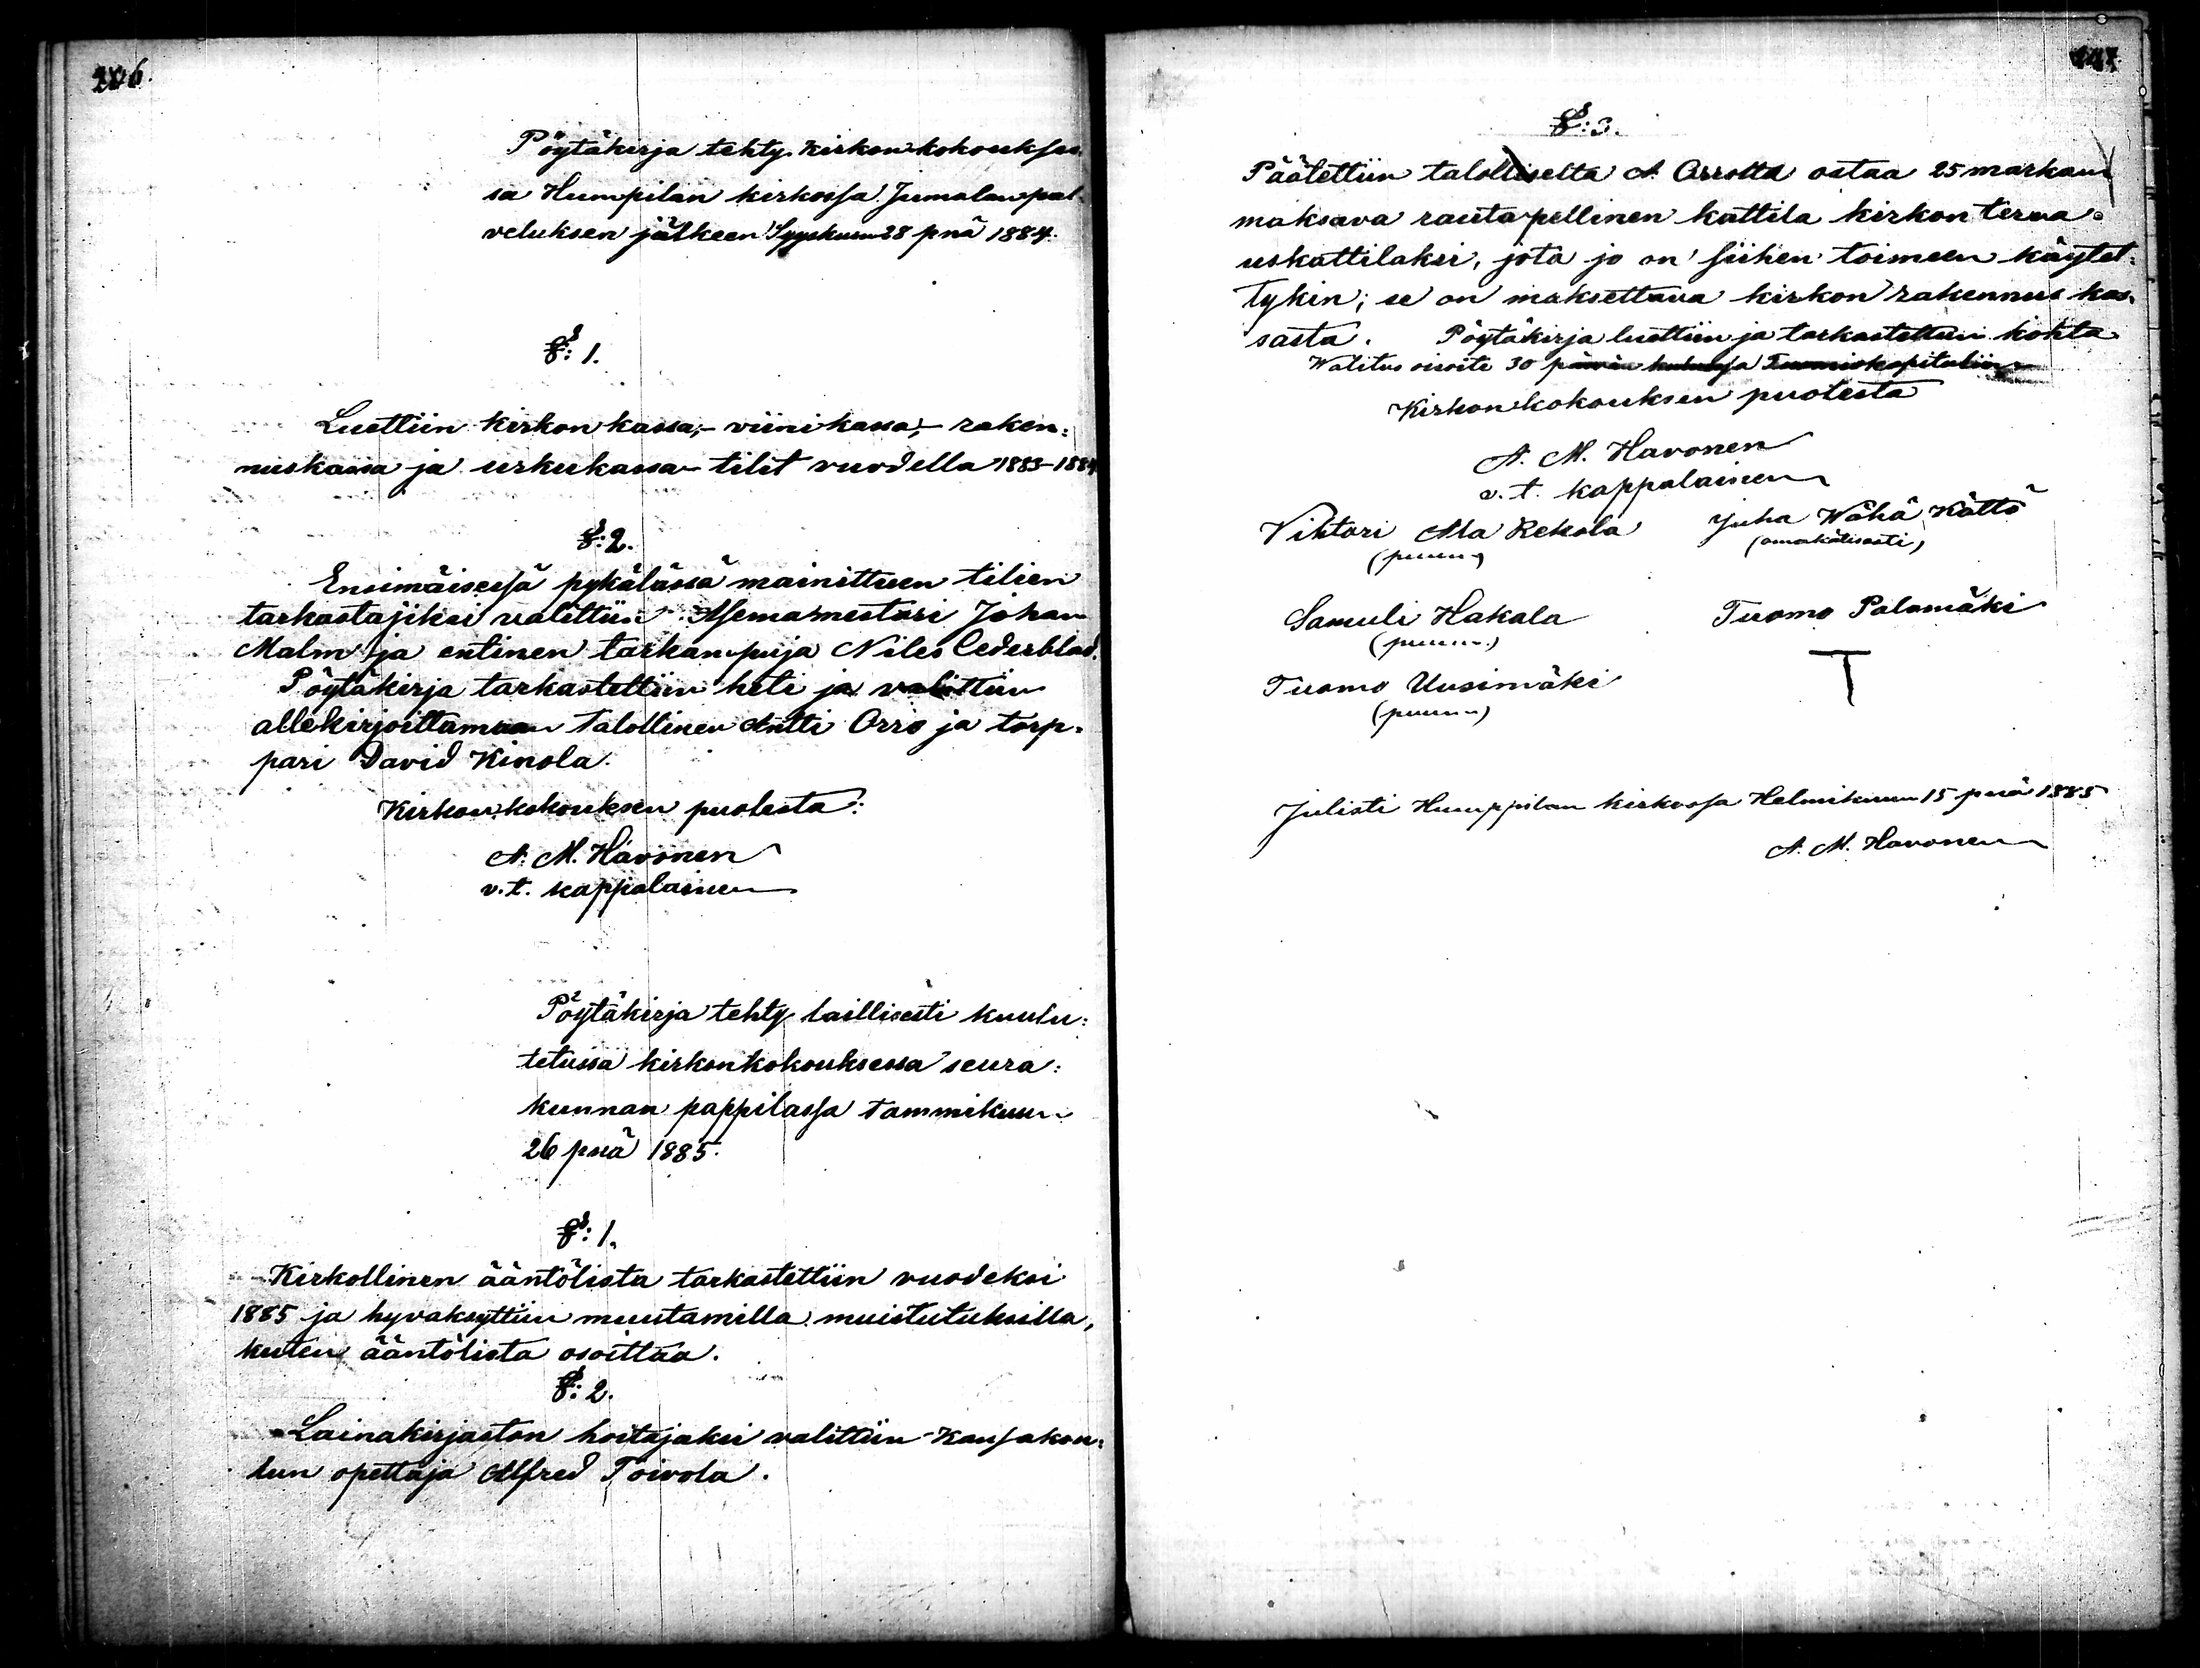 Pöytäkirja tehty kirkonkokoukses:
sa Humpilan kirkossa Jumalanpal-
veluksen jälkeen Syyskuun 28 pnä 1884.
§: 1.
Luettiin kirkon kassa,- viinikassa,- raken:
nuskassa ja urkukassa- tilit vuodella 1883-1884
§: 2.
Ensimäisessä pykälässä mainittuen tilien
tarkastajiksi valittiin Asemamestari Johan
Malm ja entinen tarkampuja Niles Cederblad.
Pöytäkirja tarkastettiin heti ja valittiin
allekirjoittamaan talollinen Antti Orro ja torp-
pari David Kinola.
Kirkonkokouksen puolesta:
A. M. Havonen
v.t. kappalainen
Pöytäkirja tehty laillisesti kuulu:
tetussa kirkonkokouksessa seura:
kunnan pappilassa tammikuun
26 pnä 1885.
§: 1.
Kirkollinen ääntölista tarkastettiin vuodeksi
1885 ja hyvaksyttiin muutamilla muistutuksilla,
kuten ääntölista osoittaa.
§: 2.
Lainakirjaston hoitajaksi valittiin Kansakou:
lun opettaja Alfred Toivola.
§: 3.
Päätettiin talolliselta A. Orrolta ostaa 25 markan
maksava rautapellinen kattila kirkon terva-
uskattilaksi, jota jo on siihen toimeen käytet:
tykin; se on maksettava kirkon rakennus kas-
sasta. Pöytäkirja luettiin ja tarkastettiin kohta
Walitus osoite 30 päivän kuluessa Tuomiokapituliin
Kirkonkokouksen puolesta
A. M. Havonen
v. t. kappalainen
Vihtori Ala Rekola Juha Wähä Kättö
(puum.) (omakätisesti)
Samuli Hakala Tuomo Palomäki
(puum.) T
Tuomo Uusimäki
(puum.)
Julisti Humppilan kirkossa Helmikuun 15 pnä 1885
A. M. Havonen